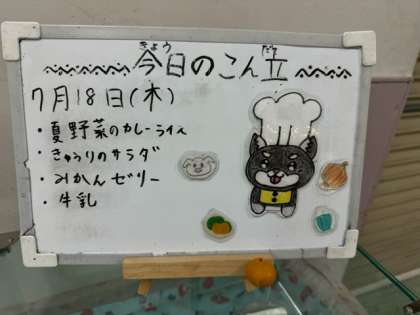 今日のこん立
きょう だて
7月18日(木)
・夏野菜のカレーライス
・きゅうりのサラダ
・みかんゼリー
・牛乳